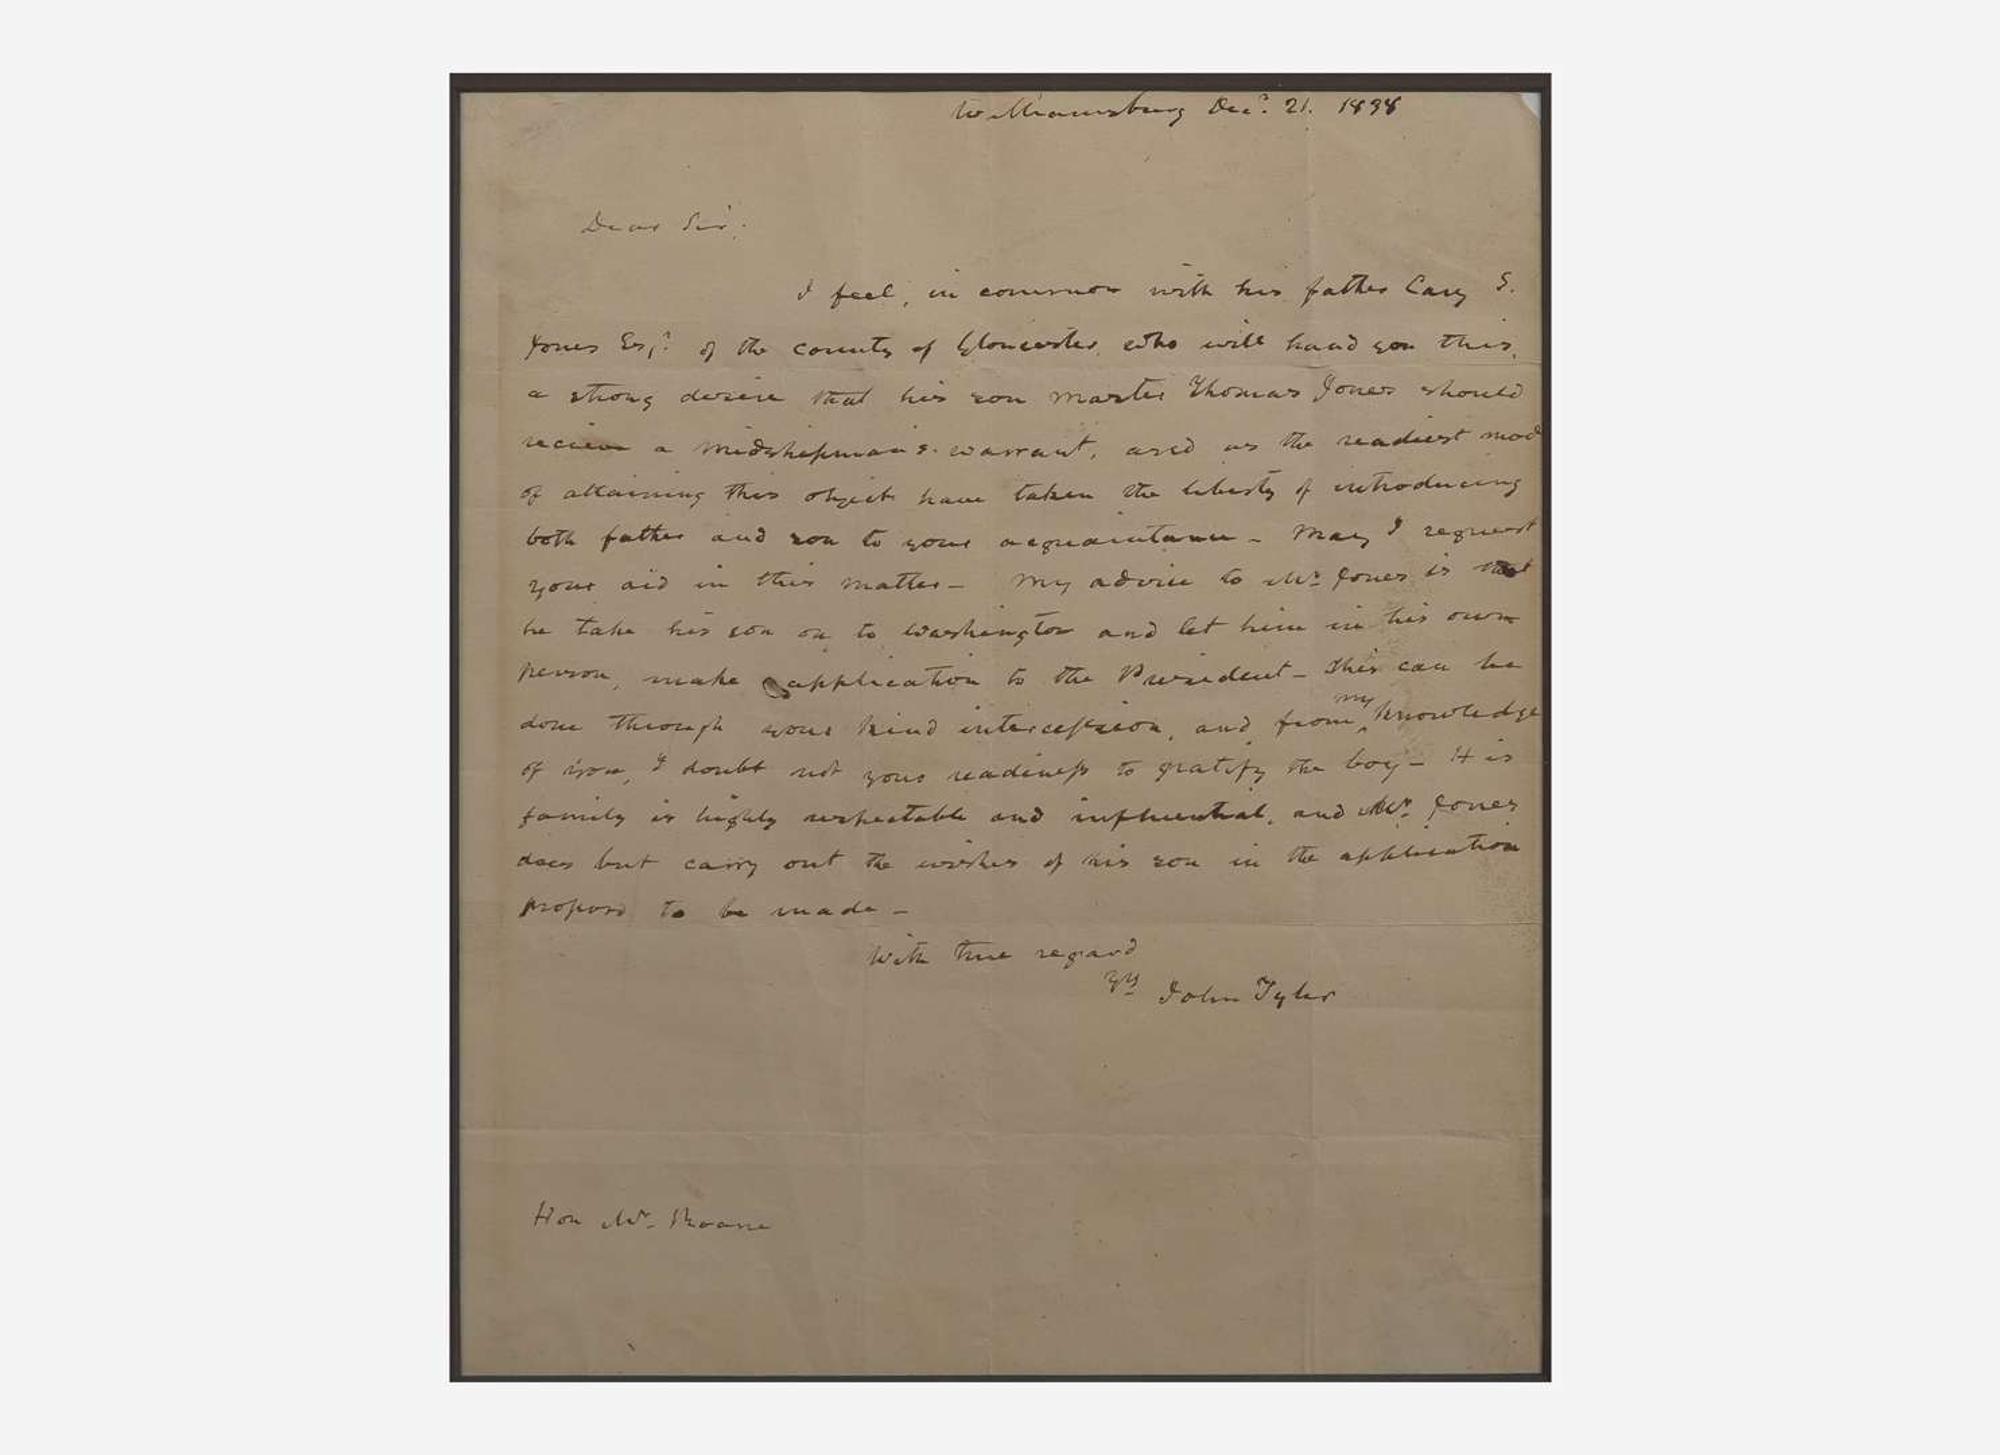 Williamsburg Decr. 21. 1838
Dear Sir.
I feel, in common with his father Cary S.
Jones Esqr. of the county of Gloucester, who will hand you this,
a strong desire that his son Master Thomas Jones should
recieve a midshipman's warrant, and as the readiest mod
of attaining this object have taken the liberty of introducing
both father and son to your acquaintance – May I request
your aid in this matter – My advice to Mr Jones is that
he take his son on to Washington and let him in his own
person, make application to the President – This can be
done through your kind intercession, and from my knowledge
of you, I doubt not your readiness to gratify the boy – His
family is highly respectable and influential, and Mr. Jones
does but carry out the wishes of his son in the application
proposd to be made –
With true regard
Yrs John Tyler
Hon Mr. Roane